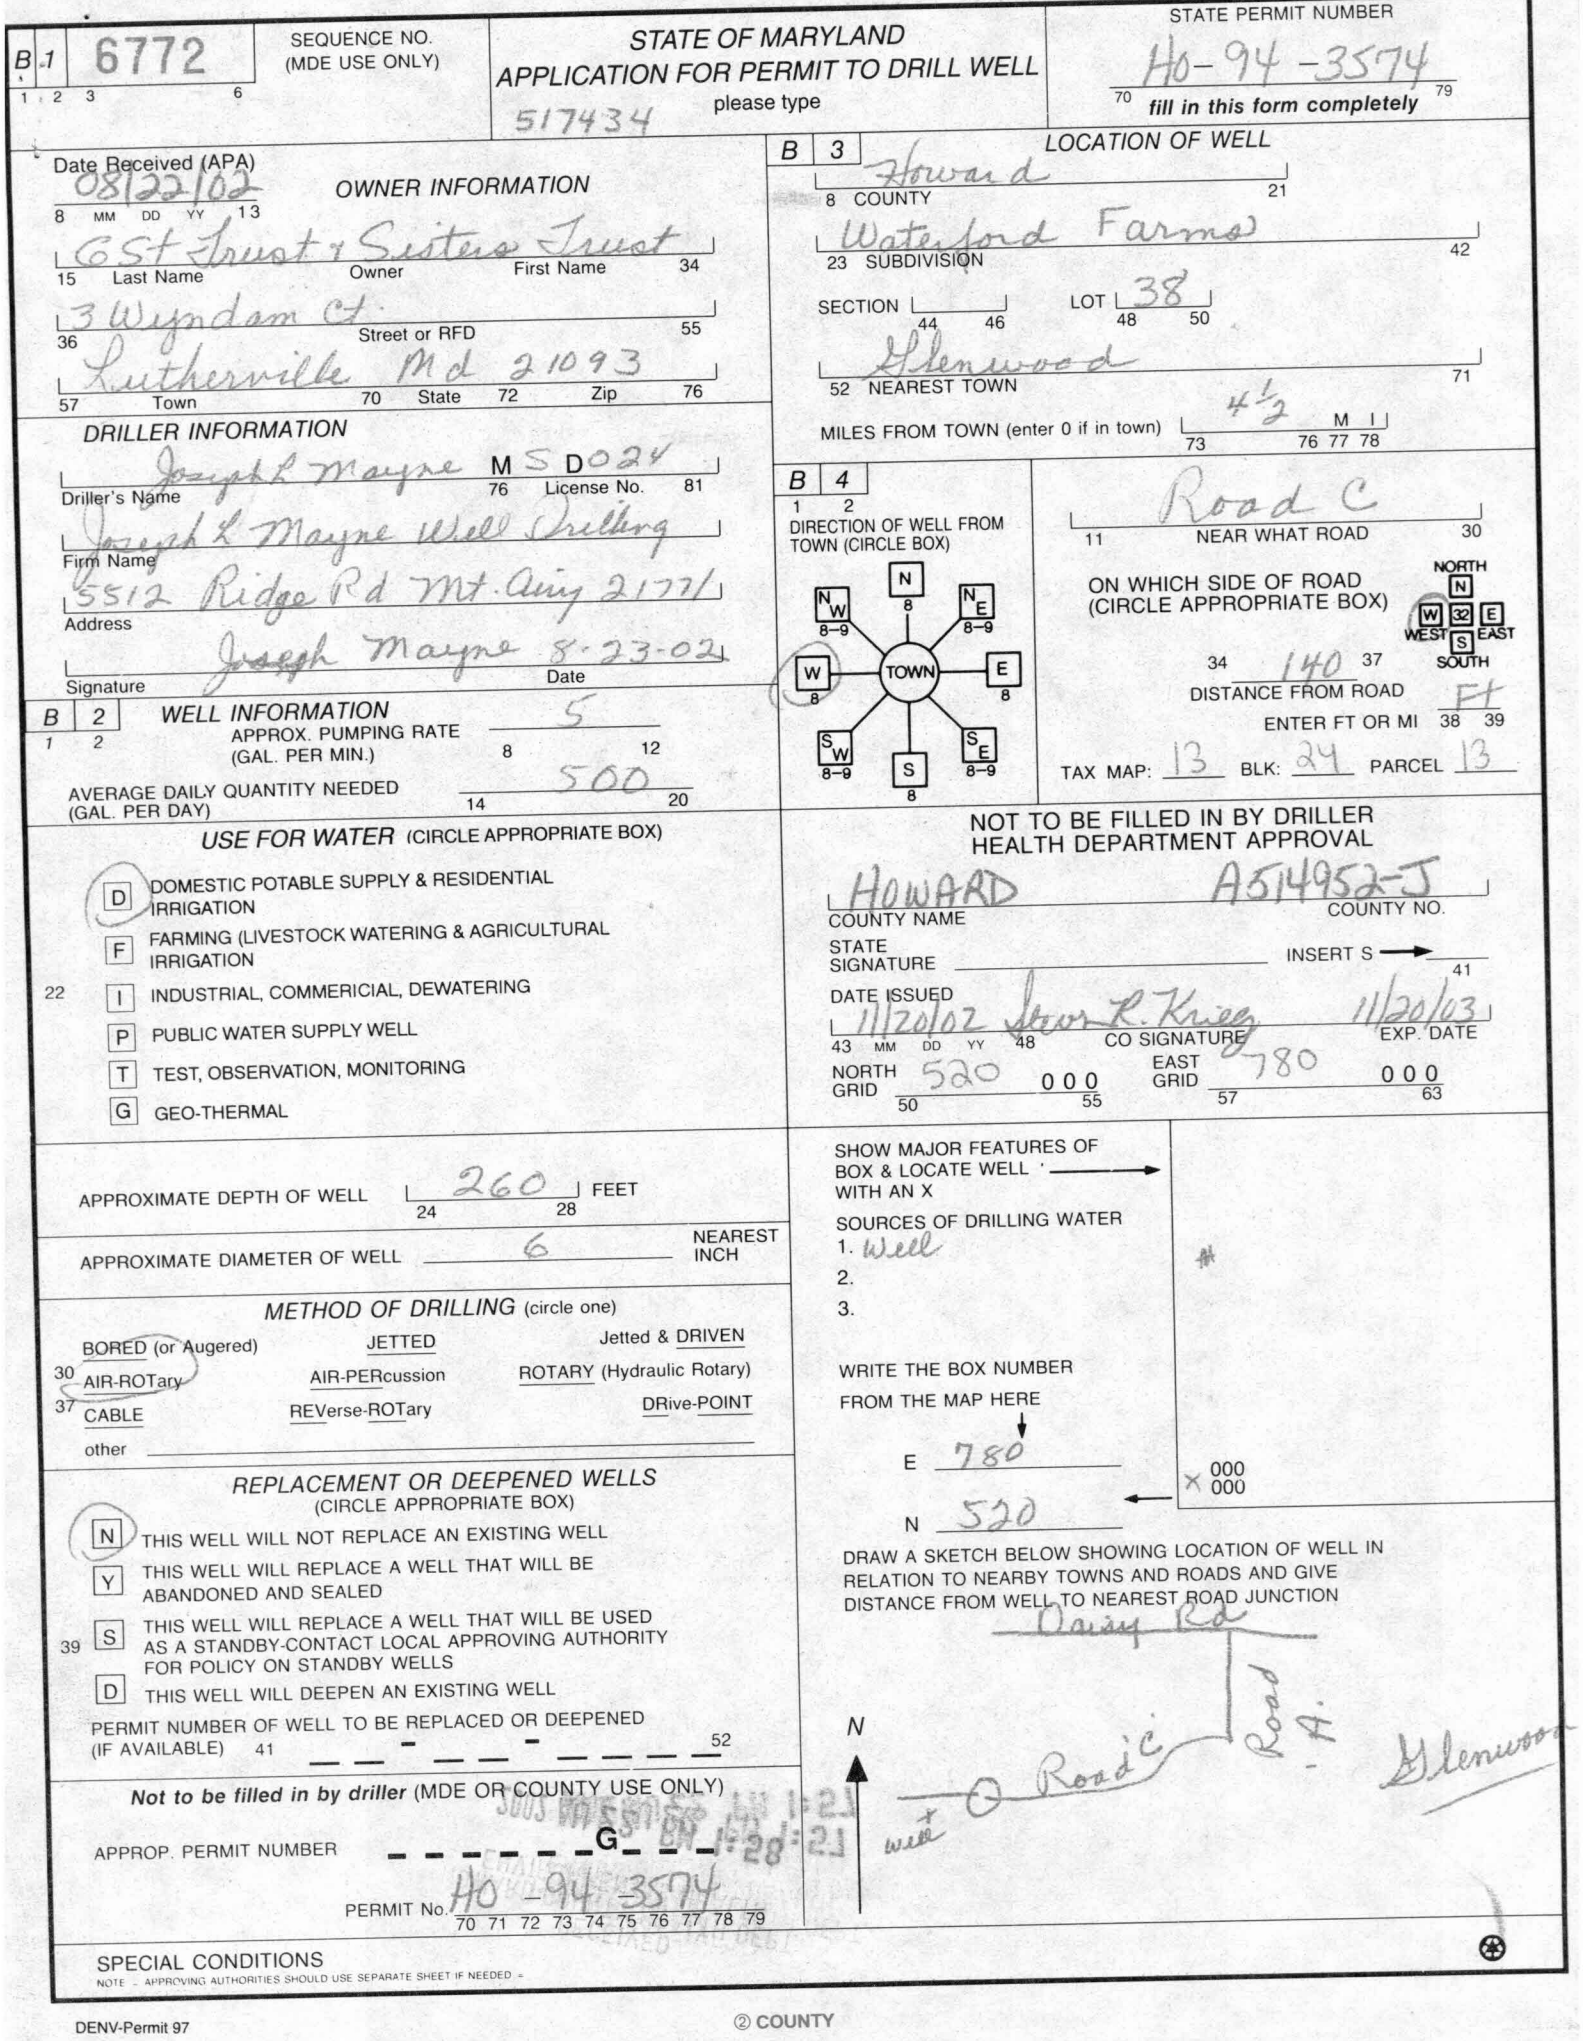 B 1 6772
1 2 3 6
SEQUENCE NO.
(MDE USE ONLY)
STATE OF MARYLAND
APPLICATION FOR PERMIT TO DRILL WELL
please type
517434
STATE PERMIT NUMBER
HO-94-3574
70 fill in this form completely 79
Date Received (APA)
08/22/02
8 MM DD YY 13
OWNER INFORMATION
GSt Trust & Sisters Trust
15 Last Name Owner First Name 34
3 Wyndam Ct.
36 Street or RFD 55
Lutherville Md 21093
57 Town 70 State 72 Zip 76
DRILLER INFORMATION
Joseph L Mayne M S D 024
Driller's Name 76 License No. 81
Joseph L Mayne Well Drilling
Firm Name
5512 Ridge Rd Mt. Airy 21771
Address
Joseph Mayne 8-23-02
Signature Date
B 2 WELL INFORMATION
1 2
APPROX. PUMPING RATE 5
(GAL. PER MIN.) 8 12
AVERAGE DAILY QUANTITY NEEDED 500
(GAL. PER DAY) 14 20
USE FOR WATER (CIRCLE APPROPRIATE BOX)
D DOMESTIC POTABLE SUPPLY & RESIDENTIAL
IRRIGATION
F FARMING (LIVESTOCK WATERING & AGRICULTURAL
IRRIGATION
22 I INDUSTRIAL, COMMERICIAL, DEWATERING
P PUBLIC WATER SUPPLY WELL
T TEST, OBSERVATION, MONITORING
G GEO-THERMAL
APPROXIMATE DEPTH OF WELL 260 FEET
24 28
APPROXIMATE DIAMETER OF WELL 6 NEAREST
INCH
METHOD OF DRILLING (circle one)
BORED (or Augered) JETTED Jetted & DRIVEN
30 AIR-ROTary AIR-PERcussion ROTARY (Hydraulic Rotary)
37 CABLE REVerse-ROTary DRive-POINT
other
REPLACEMENT OR DEEPENED WELLS
(CIRCLE APPROPRIATE BOX)
N THIS WELL WILL NOT REPLACE AN EXISTING WELL
Y THIS WELL WILL REPLACE A WELL THAT WILL BE
ABANDONED AND SEALED
39 S THIS WELL WILL REPLACE A WELL THAT WILL BE USED
AS A STANDBY-CONTACT LOCAL APPROVING AUTHORITY
FOR POLICY ON STANDBY WELLS
D THIS WELL WILL DEEPEN AN EXISTING WELL
PERMIT NUMBER OF WELL TO BE REPLACED OR DEEPENED
(IF AVAILABLE) 41 52
Not to be filled in by driller (MDE OR COUNTY USE ONLY)
APPROP. PERMIT NUMBER G
PERMIT No. HO-94-3574
70 71 72 73 74 75 76 77 78 79
B 3 LOCATION OF WELL
Howard
8 COUNTY 21
Waterford Farms
23 SUBDIVISION 42
SECTION LOT 38
44 46 48 50
Glenwood
52 NEAREST TOWN 71
MILES FROM TOWN (enter 0 if in town) 4 1/2 M I
73 76 77 78
B 4
1 2
DIRECTION OF WELL FROM
TOWN (CIRCLE BOX)
N 8
NW 8-9
NE 8-9
W 8
TOWN
E 8
SW 8-9
S 8
SE 8-9
Road C
11 NEAR WHAT ROAD 30
ON WHICH SIDE OF ROAD
(CIRCLE APPROPRIATE BOX)
NORTH
N
W 32 E
WEST S EAST
SOUTH
34 140 37
DISTANCE FROM ROAD
Ft
ENTER FT OR MI 38 39
TAX MAP: 13 BLK: 24 PARCEL 13
NOT TO BE FILLED IN BY DRILLER
HEALTH DEPARTMENT APPROVAL
HOWARD A514952-J
COUNTY NAME COUNTY NO.
STATE
SIGNATURE INSERT S
41
DATE ISSUED
11/20/02 Steven R. Krieg 11/20/03
43 MM DD YY 48 CO SIGNATURE EXP. DATE
NORTH GRID 520 000 EAST GRID 780 000
50 55 57 63
SHOW MAJOR FEATURES OF
BOX & LOCATE WELL
WITH AN X
SOURCES OF DRILLING WATER
1. Well
2.
3.
WRITE THE BOX NUMBER
FROM THE MAP HERE
E 780
N 520
X 000
000
DRAW A SKETCH BELOW SHOWING LOCATION OF WELL IN
RELATION TO NEARBY TOWNS AND ROADS AND GIVE
DISTANCE FROM WELL TO NEAREST ROAD JUNCTION
Daisy Rd
Road A
Road C
Glenwood
well
N
SPECIAL CONDITIONS
NOTE - APPROVING AUTHORITIES SHOULD USE SEPARATE SHEET IF NEEDED =
DENV-Permit 97
② COUNTY